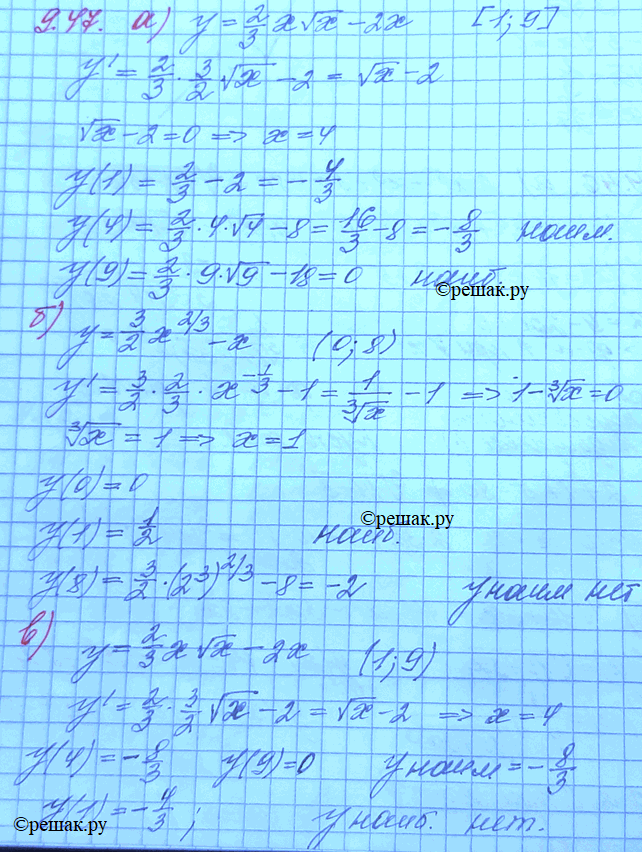 9.47. а) y = 2/3 x√x − 2x [1; 9]
y' = 2/3 · 3/2 √x − 2 = √x − 2
√x − 2 = 0 => x = 4
y(1) = 2/3 − 2 = − 4/3
y(4) = 2/3 · 4 · √4 − 8 = 16/3 − 8 = − 8/3 наим.
y(9) = 2/3 · 9 · √9 − 18 = 0 наиб.
©решак.ру
б) y = 3/2 x^2/3 − x (0; 8)
y' = 3/2 · 2/3 · x^−1/3 − 1 = 1/∛x − 1 => 1 − ∛x = 0
∛x = 1 => x = 1
y(0) = 0
©решак.ру
y(1) = 1/2 наиб.
y(8) = 3/2 · (2^3)^2/3 − 8 = −2 y наим нет
в)
y = 2/3 x√x − 2x (1; 9)
y' = 2/3 · 3/2 √x − 2 = √x − 2 => x = 4
y(4) = − 8/3 y(9) = 0 y наим = − 8/3
y(1) = − 4/3 ; y наиб. нет.
©решак.ру